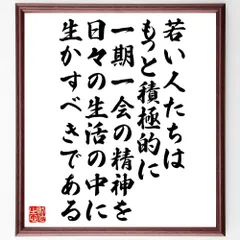 若い人たちは
もっと積極的に
一期一会の精神を
日々の生活の中に
生かすべきである